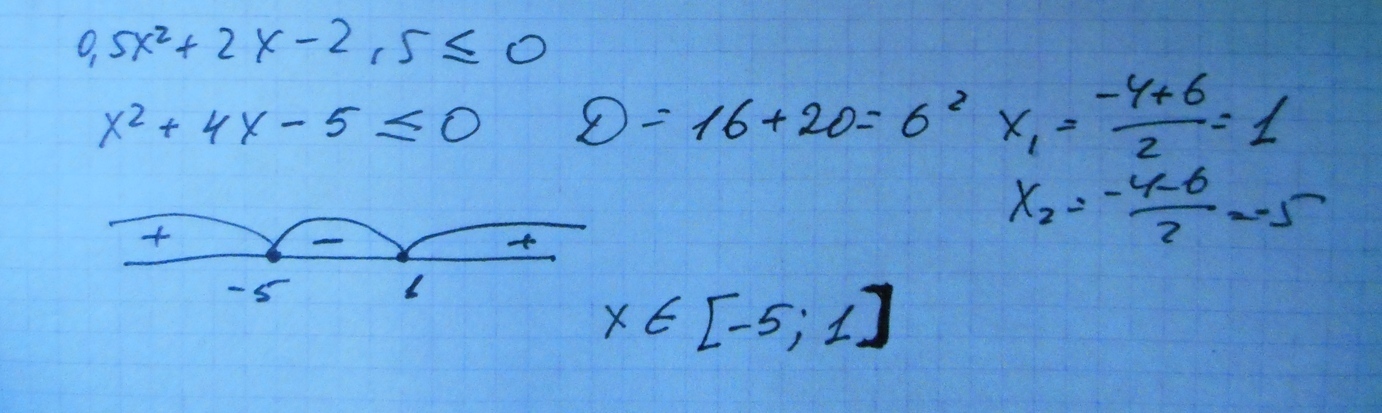 0,5x² + 2x - 2,5 ≤ 0
x² + 4x - 5 ≤ 0 D = 16 + 20 = 6² x₁ = (-4+6)/2 = 1
x₂ = (-4-6)/2 = -5
+ - +
-5 1
x ∈ [-5; 1]